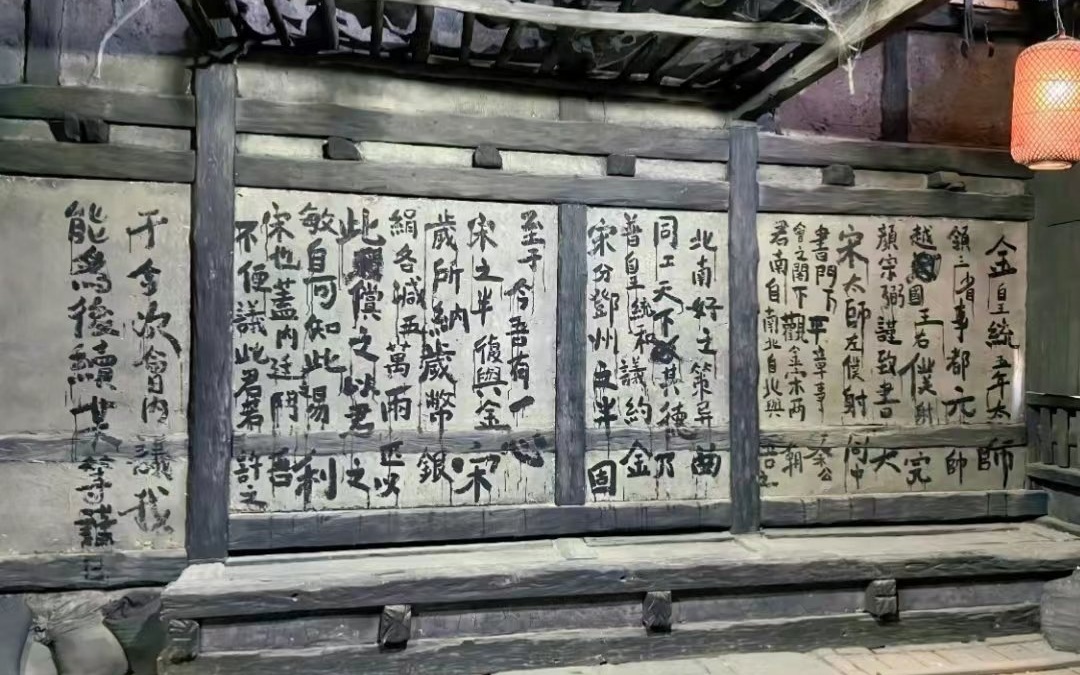 金皇統五年太師
領三省事都元帥
越國王右僕射完
顏宗弼謹致書大
宋太師左僕射同中
書門下平章事秦公
會之閣下觀金宋兩朝
君南自南北自北與吾之
北南好之策异曲
同工天下故其德乃
普皇統和議約金
宋分鄧州之半固
至于今吾有一心
宋之半復與金宋
歲所納歲幣銀
絹各減五萬兩匹以
此償之以君之
敏自可知此易利
宋也蓋内廷鬥吾
不便議此君若許之
于今次會内議我
能爲後續